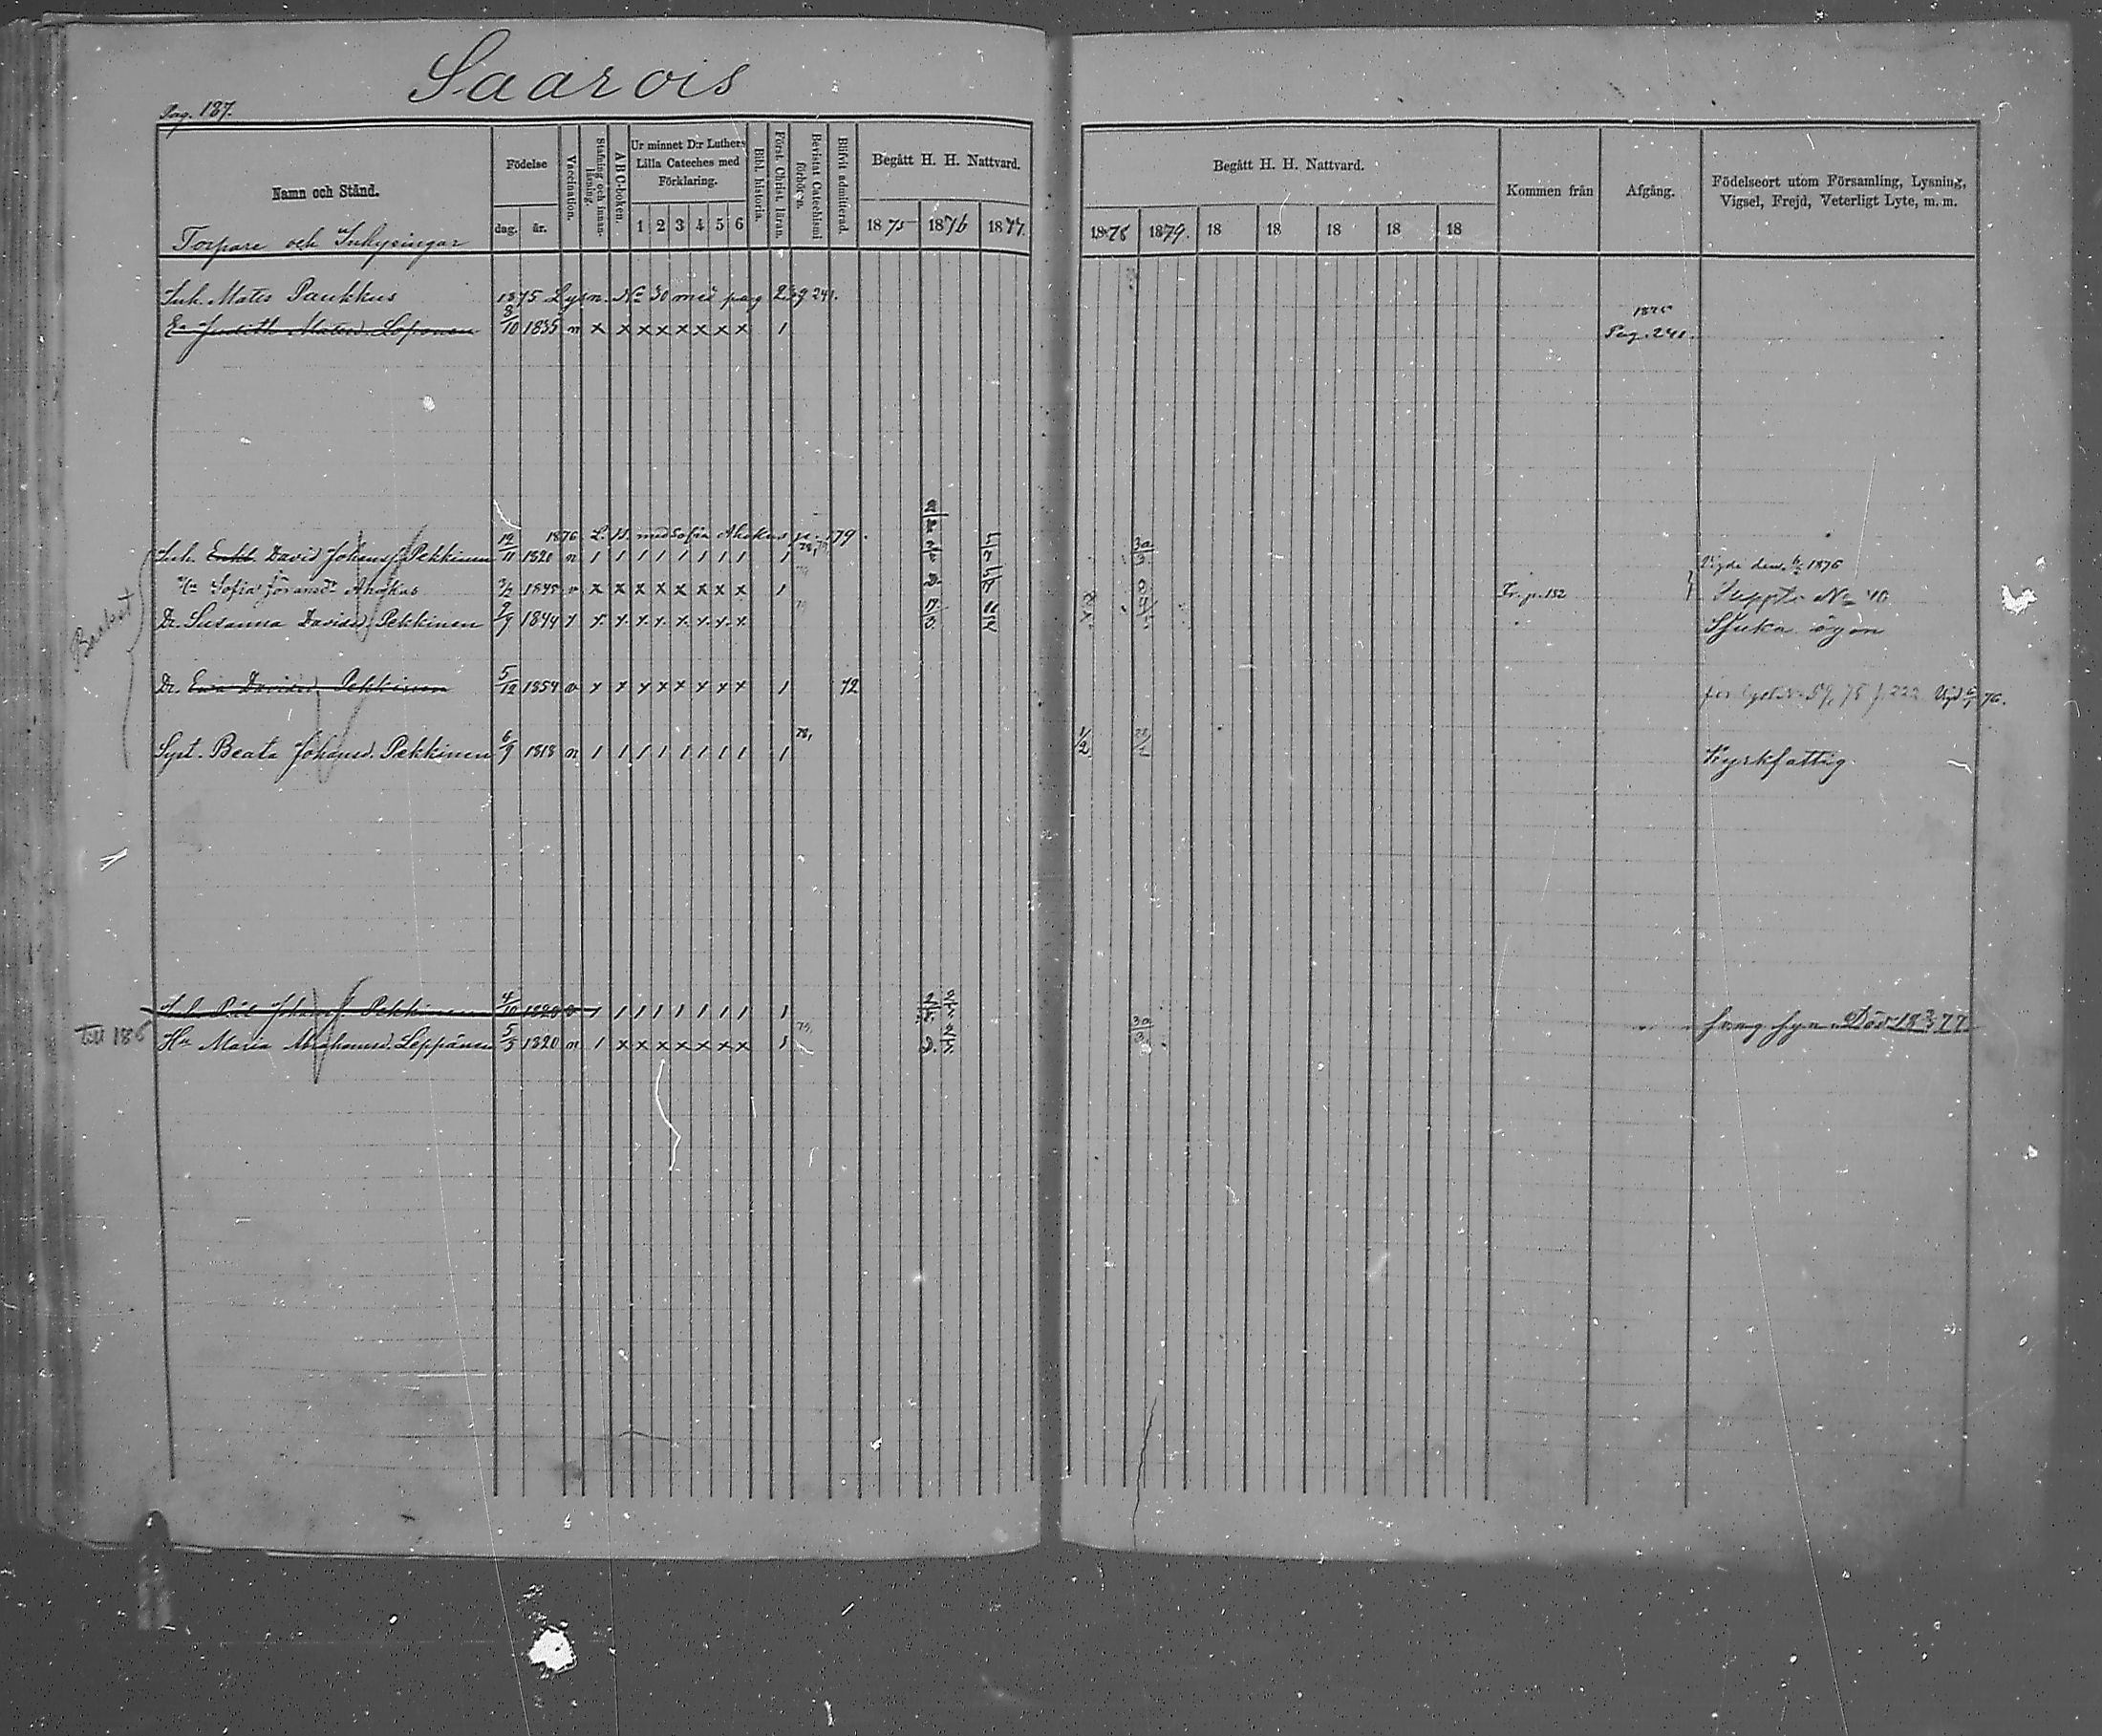 Saarois
Pag. 187.
Namn och Stånd.
Torpare och Inhysingar
Födelse
dag. år.
Vaccination.
Stafning och innanläsning.
ABC-boken.
Ur minnet D:r Luthers Lilla Cateches med Förklaring.
1 2 3 4 5 6
Bibl. historia.
Först. Christ. läran.
Bevistat Catechismi förhör n.
Blifvit admitterad.
Begått H. H. Nattvard.
1875 1876 1877.
Begått H. H. Nattvard.
1878 1879. 18 18 18 18 18
Kommen från
Afgång.
Födelseort utom Församling, Lysning, Vigsel, Frejd, Veterligt Lyte, m. m.
Inh. Mats Paukkus 1875 Lysn. No 30 med pag 241.
Ea Judith Matsd. Loponen 8/10 1835 n x x x x x x x x 1 1875 Pag. 241.
1876 L. 11. med Sofia Ahokas p. 79.
Inh. Enkl. David Johansf. Pekkinen 12/11 1820 n 1 1 1 1 1 1 1 1 1 78, 30/3 Vigde den 1876
Hu Sofia Göransdr Ahokas 3/2 1845 v x x x x x x x x 1 Fr. p. 152 No 40
Dr. Susanna Davidsd. Pekkinen 2/9 1844 x x x x x x x x Sjuka ögon
Backst
Dr. Eva Davidsd. Pekkinen 5/12 1854 v x x x x x x x x 1 72 222 Vigd 76.
Syst. Beata Johansd. Pekkinen 6/9 1818 n 1 1 1 1 1 1 1 1 1 78, 1/2 Kyrkfattig
Inh. Johansf. Pekkinen 4/10 1820 v 1 1 1 1 1 1 1 1 1 svag syn Död 18 3/3 77
till 186 Hu Maria Abrahamsd. Leppänen 5/5 1820 n 1 x x x x x x x 1 79, 30/3